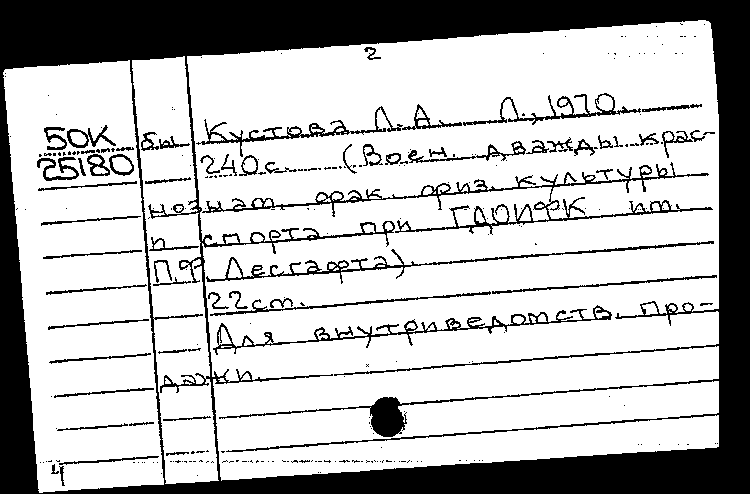 2
50К
25180
бы Кустова Л.А. Л., 1970.
240с. (Воен. дважды крас-
нознам. фак. физ. культуры
и спорта при ГДОИФК им.
П.Ф. Лесгафта).
22см.
Для внутриведомств. про-
дажи.